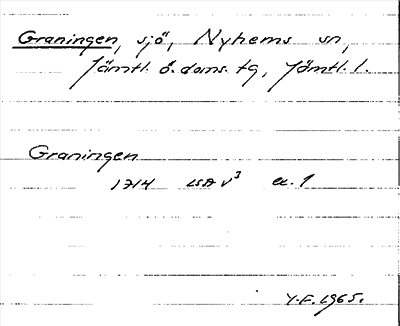 Graningen, sjö, Nyhems sn,
Jämtl. ö. doms. tg, Jämtl. l.
Graningen
1714 LSA V³ a. 1
Y.F. 1965.